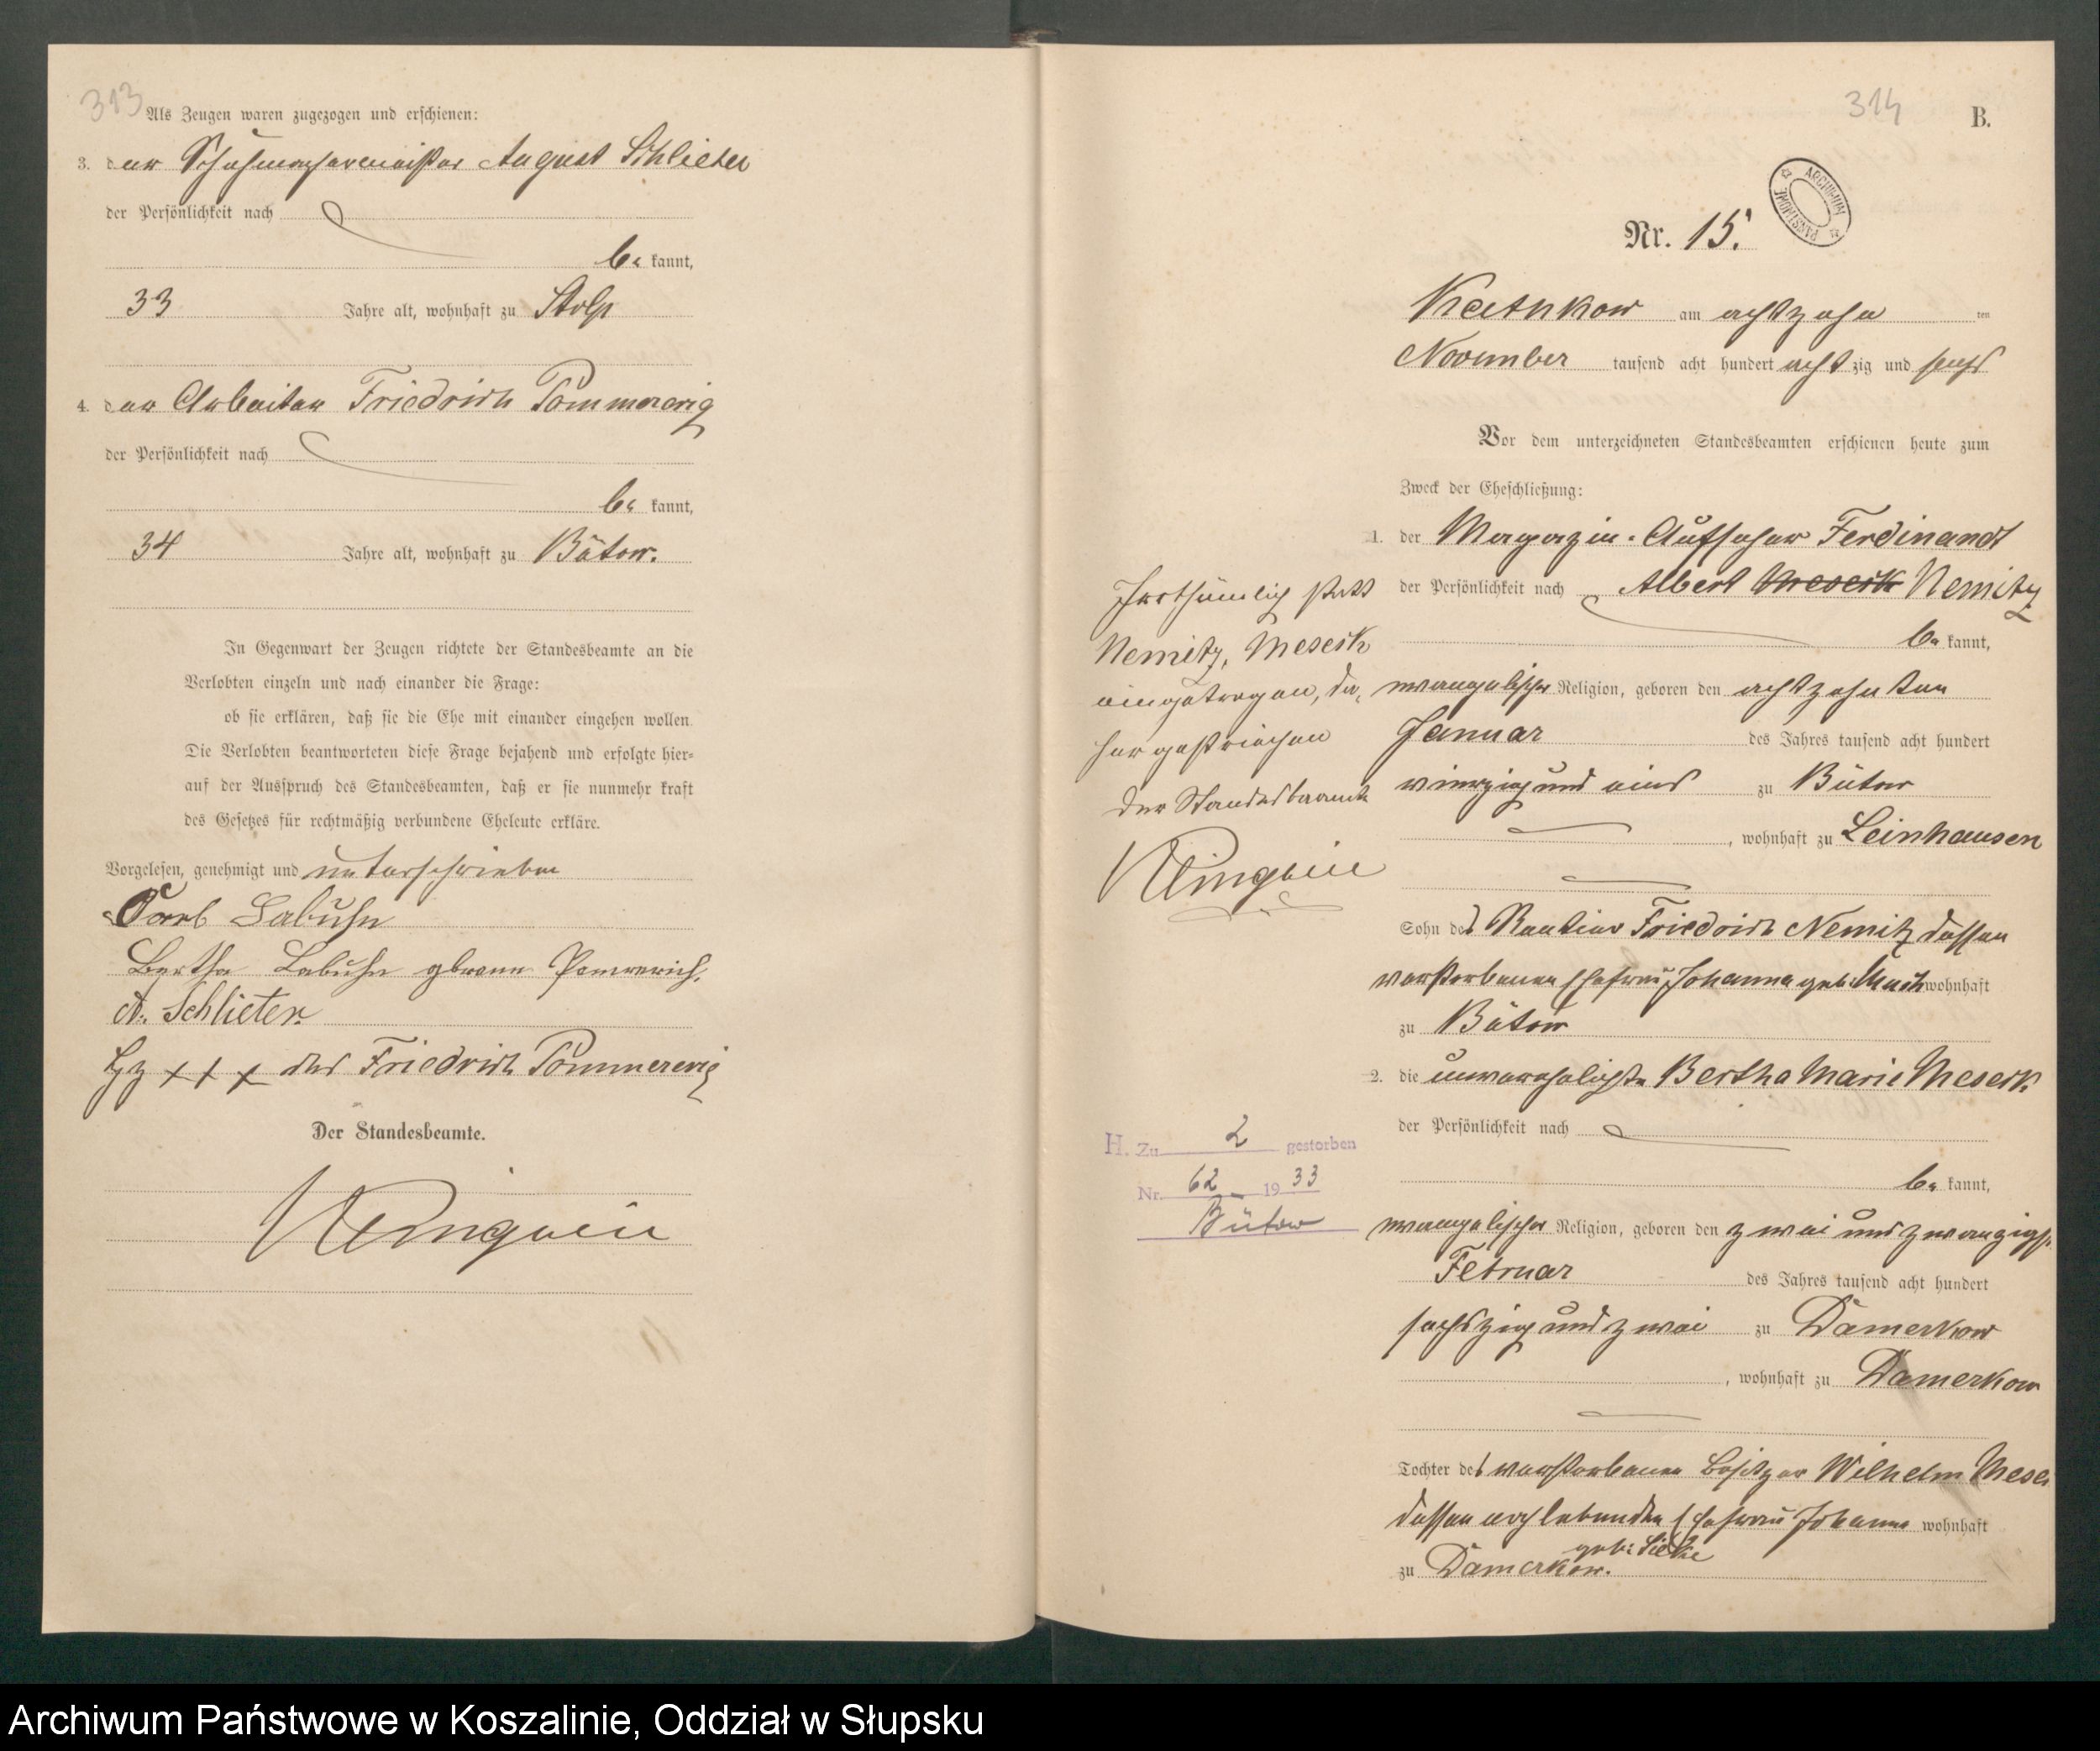 313
Als Zeugen waren zugezogen und erschienen:
3. der Schuhmachermeister August Schlieter
der Persönlichkeit nach
be kannt,
33 Jahre alt, wohnhaft zu Stolp
4. der Arbeiter Friedrich Pommerenig
der Persönlichkeit nach
be kannt,
34 Jahre alt, wohnhaft zu Bütow.
In Gegenwart der Zeugen richtete der Standesbeamte an die
Verlobten einzeln und nach einander die Frage:
ob sie erklären, daß sie die Ehe mit einander eingehen wollen
Die Verlobten beantworteten diese Frage bejahend und erfolgte hier-
auf der Ausspruch des Standesbeamten, daß er sie nunmehr kraft
des Gesetzes für rechtmäßig verbundene Eheleute erkläre.
Vorgelesen, genehmigt und unterschrieben
Carl Labuhn
Bertha Labuhn geborene Pomrerich.
A. Schlieter.
Hz +++ des Friedrich Pommerenig
Der Standesbeamte.
314
B.
ARCHIWUM PAŃSTWOWE
Nr. 15.
Kathkow am achtzehn ten
November tausend acht hundert acht zig und sechs
Vor dem unterzeichneten Standesbeamten erschienen heute zum
Zweck der Eheschließung:
1. der Magazin-Aufseher Ferdinandt
der Persönlichkeit nach Albert Meseck Nemitz
be kannt,
evangelischer Religion, geboren den achtzehnten
Januar des Jahres tausend acht hundert
vierzig und eins zu Bütow
, wohnhaft zu Leinhausen
Sohn des Rentier Friedrich Nemitz dessen
verstorbenen Ehefrau Johanna geb. Much wohnhaft
zu Bütow
2. die unverehelichte Bertha Marie Meseck
der Persönlichkeit nach
be kannt,
evangelischer Religion, geboren den zwei und zwanzigst
Februar des Jahres tausend acht hundert
sechszig und zwei zu Damerkow
, wohnhaft zu Damerkow
Tochter des verstorbenen Besitzer Wilhelm Mese
dessen noch lebenden Ehefrau Johanna wohnhaft
geb: Sielke
zu Damerkow.
Irrthümlich statt
Nemitz, Meseck
eingetragen, da,
her gestrichen
Der Standesbeamte
H. Zu 2 gestorben
Nr. 62 - 19 33
Bütow
Archiwum Państwowe w Koszalinie, Oddział w Słupsku